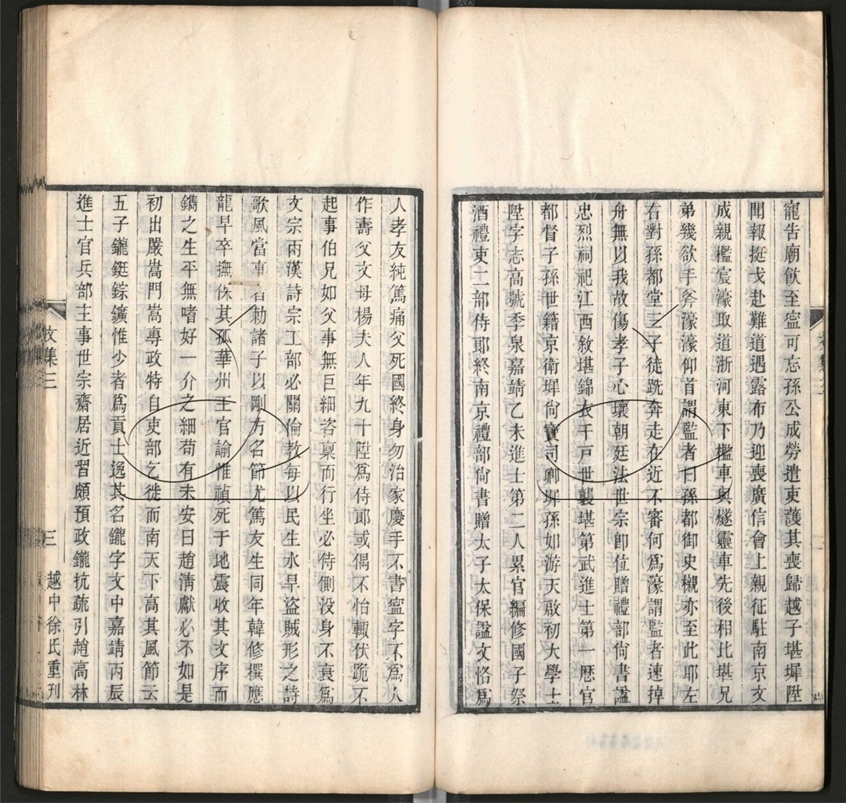 寵告廟飲至寍可忘孫公成勞遣吏護其喪歸越子堪墀陞
聞報挺戈赴難道遇露布乃迎喪廣信會上親征駐南京文
成親檻宸濠取道浙河東下檻車與燧靈車先後相比堪兄
弟幾欲手斧濠濠仰首謂監者曰孫都御史櫬亦至此耶左
右對孫都堂三子徒跣奔走在近不審何爲濠謂監者速掉
舟無以我故傷孝子心壞朝廷法世宗卽位贈禮部尙書諡
忠烈祠祀江西敘堪錦衣千戸世襲堪第武進士第一歷官
都督子孫世籍京衛墀尙寶司卿墀孫如游天啟初大學士
陞字志高號季泉嘉靖乙未進士第二人累官編修國子祭
酒禮吏二部侍郞終南京禮部尙書贈太子太保諡文恪爲
人孝友純篤痛父死國終身勿治家慶手不書寍字不爲人
作壽父文母楊夫人年九十陞爲侍郞或偶不怡輒伏跪不
起事伯兄如父事無巨細咨稟而行坐必侍側沒身不衰爲
文宗兩漢詩宗工部必關倫敎每以民生水旱盜賊形之詩
歌風當事者勅諸子以剛方名節尤篤友生同年韓修撰應
龍早卒撫恤其孤華州王官諭惟禎死于地震收其文序而
鐫之生平無嗜好一介之細苟有未安曰趙淸獻必不如是
初出嚴嵩門嵩專政特自吏部乞徙而南天下高其風節云
五子鑨鋌錝鑛惟少者爲貢士逸其名鑨字文中嘉靖丙辰
進士官兵部主事世宗齋居近習頗預政鑨抗疏引趙高林
文集三
三
越中徐氏重刊